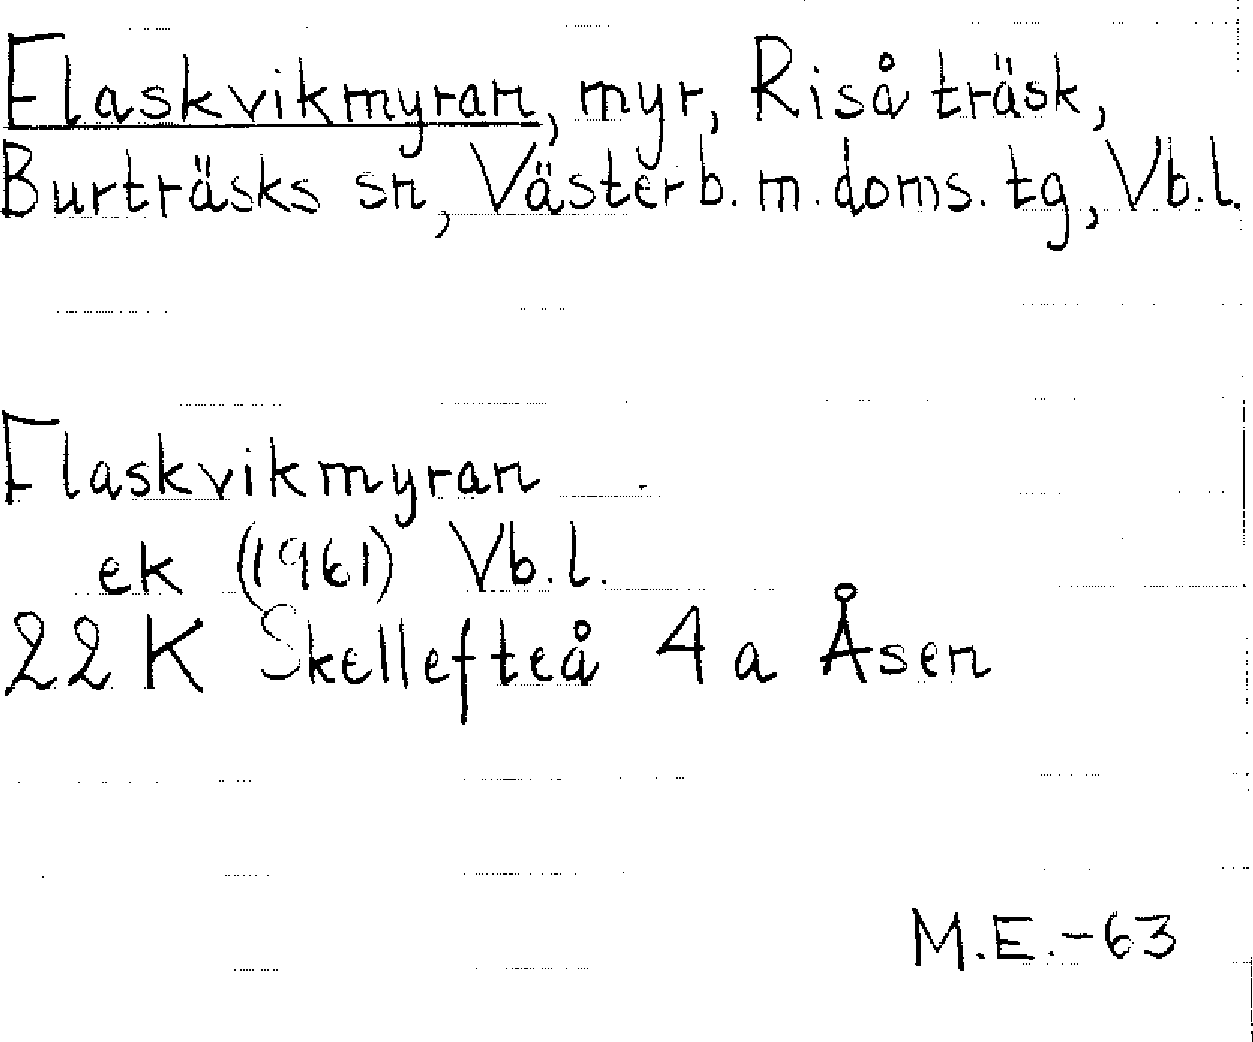 Flaskvikmyran, myr, Riså träsk,
Burträsks sn, Västerb. m. doms. tg, Vb.l.
Flaskvikmyran
ek (1961) Vb.l.
22K Skellefteå 4a Åsen
M.E.-63